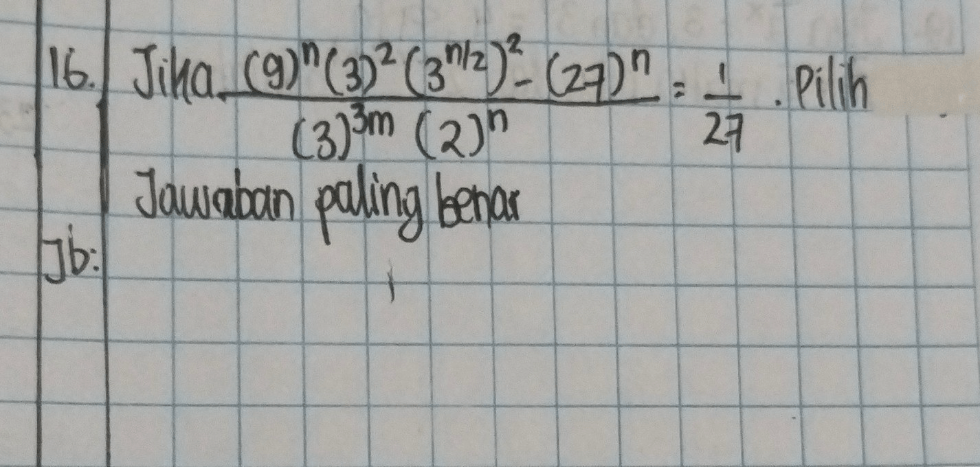 16. Jika (9)ⁿ(3)²(3^(n/2))² - (27)ⁿ / (3)^(3m) (2)ⁿ = 1/27 . Pilih
Jawaban paling benar
Jb: